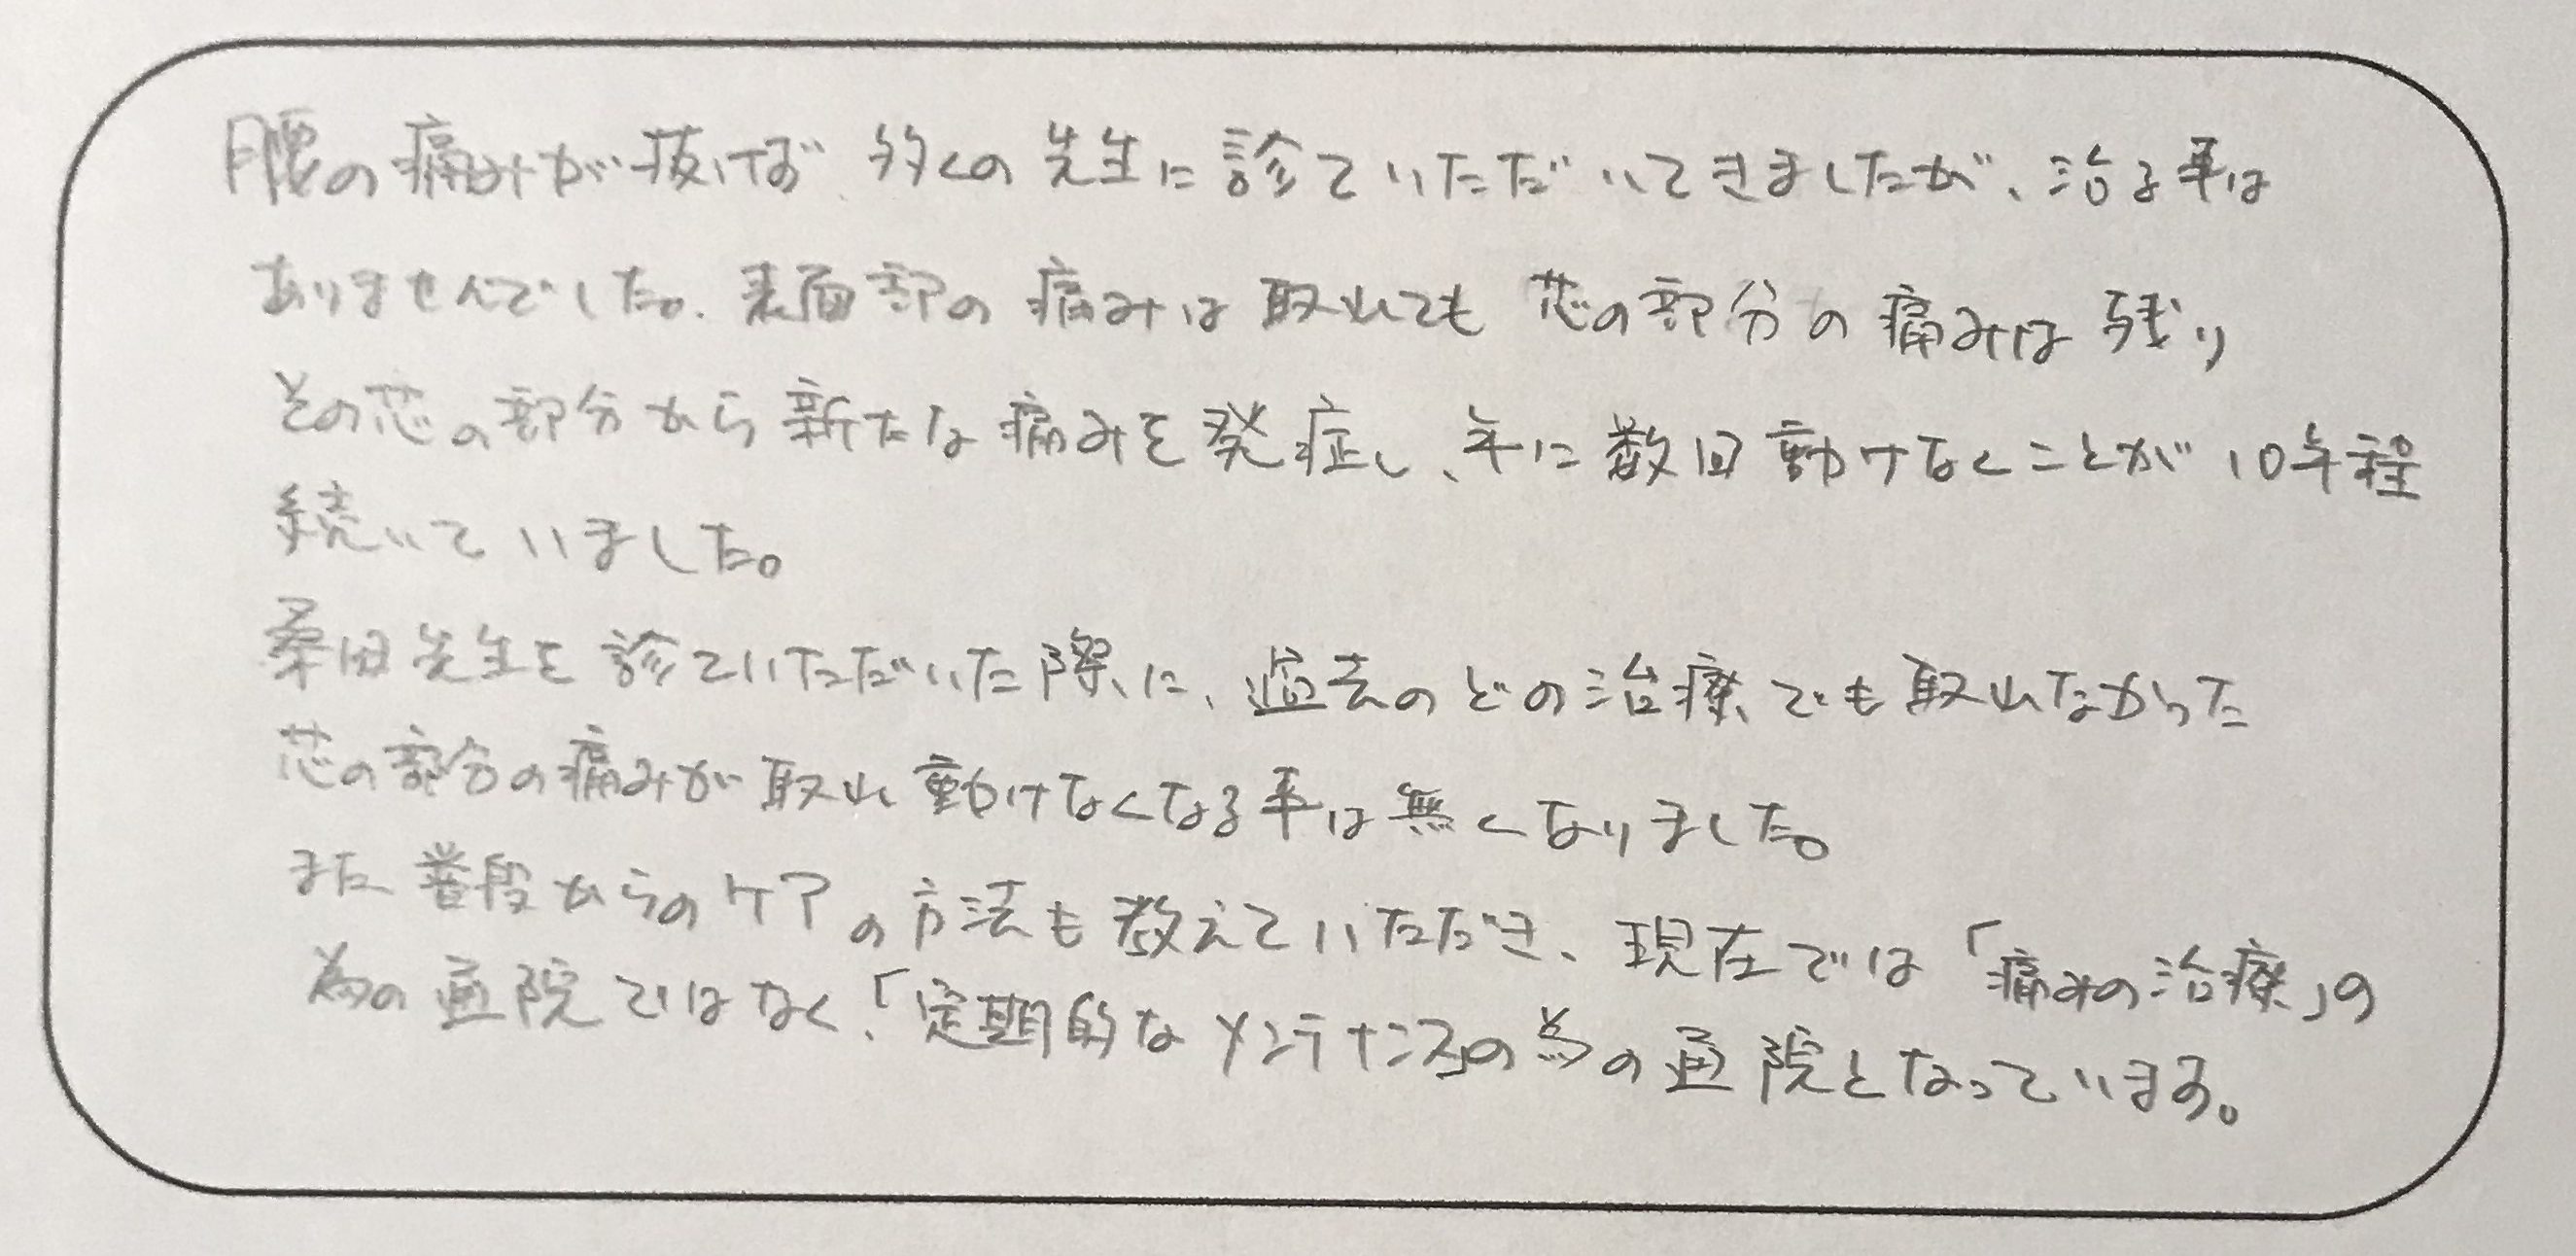 腰の痛みが抜けず、多くの先生に診ていただいてきましたが、治る事は
ありませんでした。表面部の痛みは取れても 芯の部分の痛みは残り
その芯の部分から新たな痛みを発症し、年に数回動けなくことが10年程
続いていました。
桑田先生を診ていただいた際に、過去のどの治療でも取れなかった
芯の部分の痛みが取れ動けなくなる事は無くなりました。
また普段からのケアの方法も教えていただき、現在では「痛みの治療」の
為の通院ではなく、「定期的なメンテナンス」の為の通院となっています。